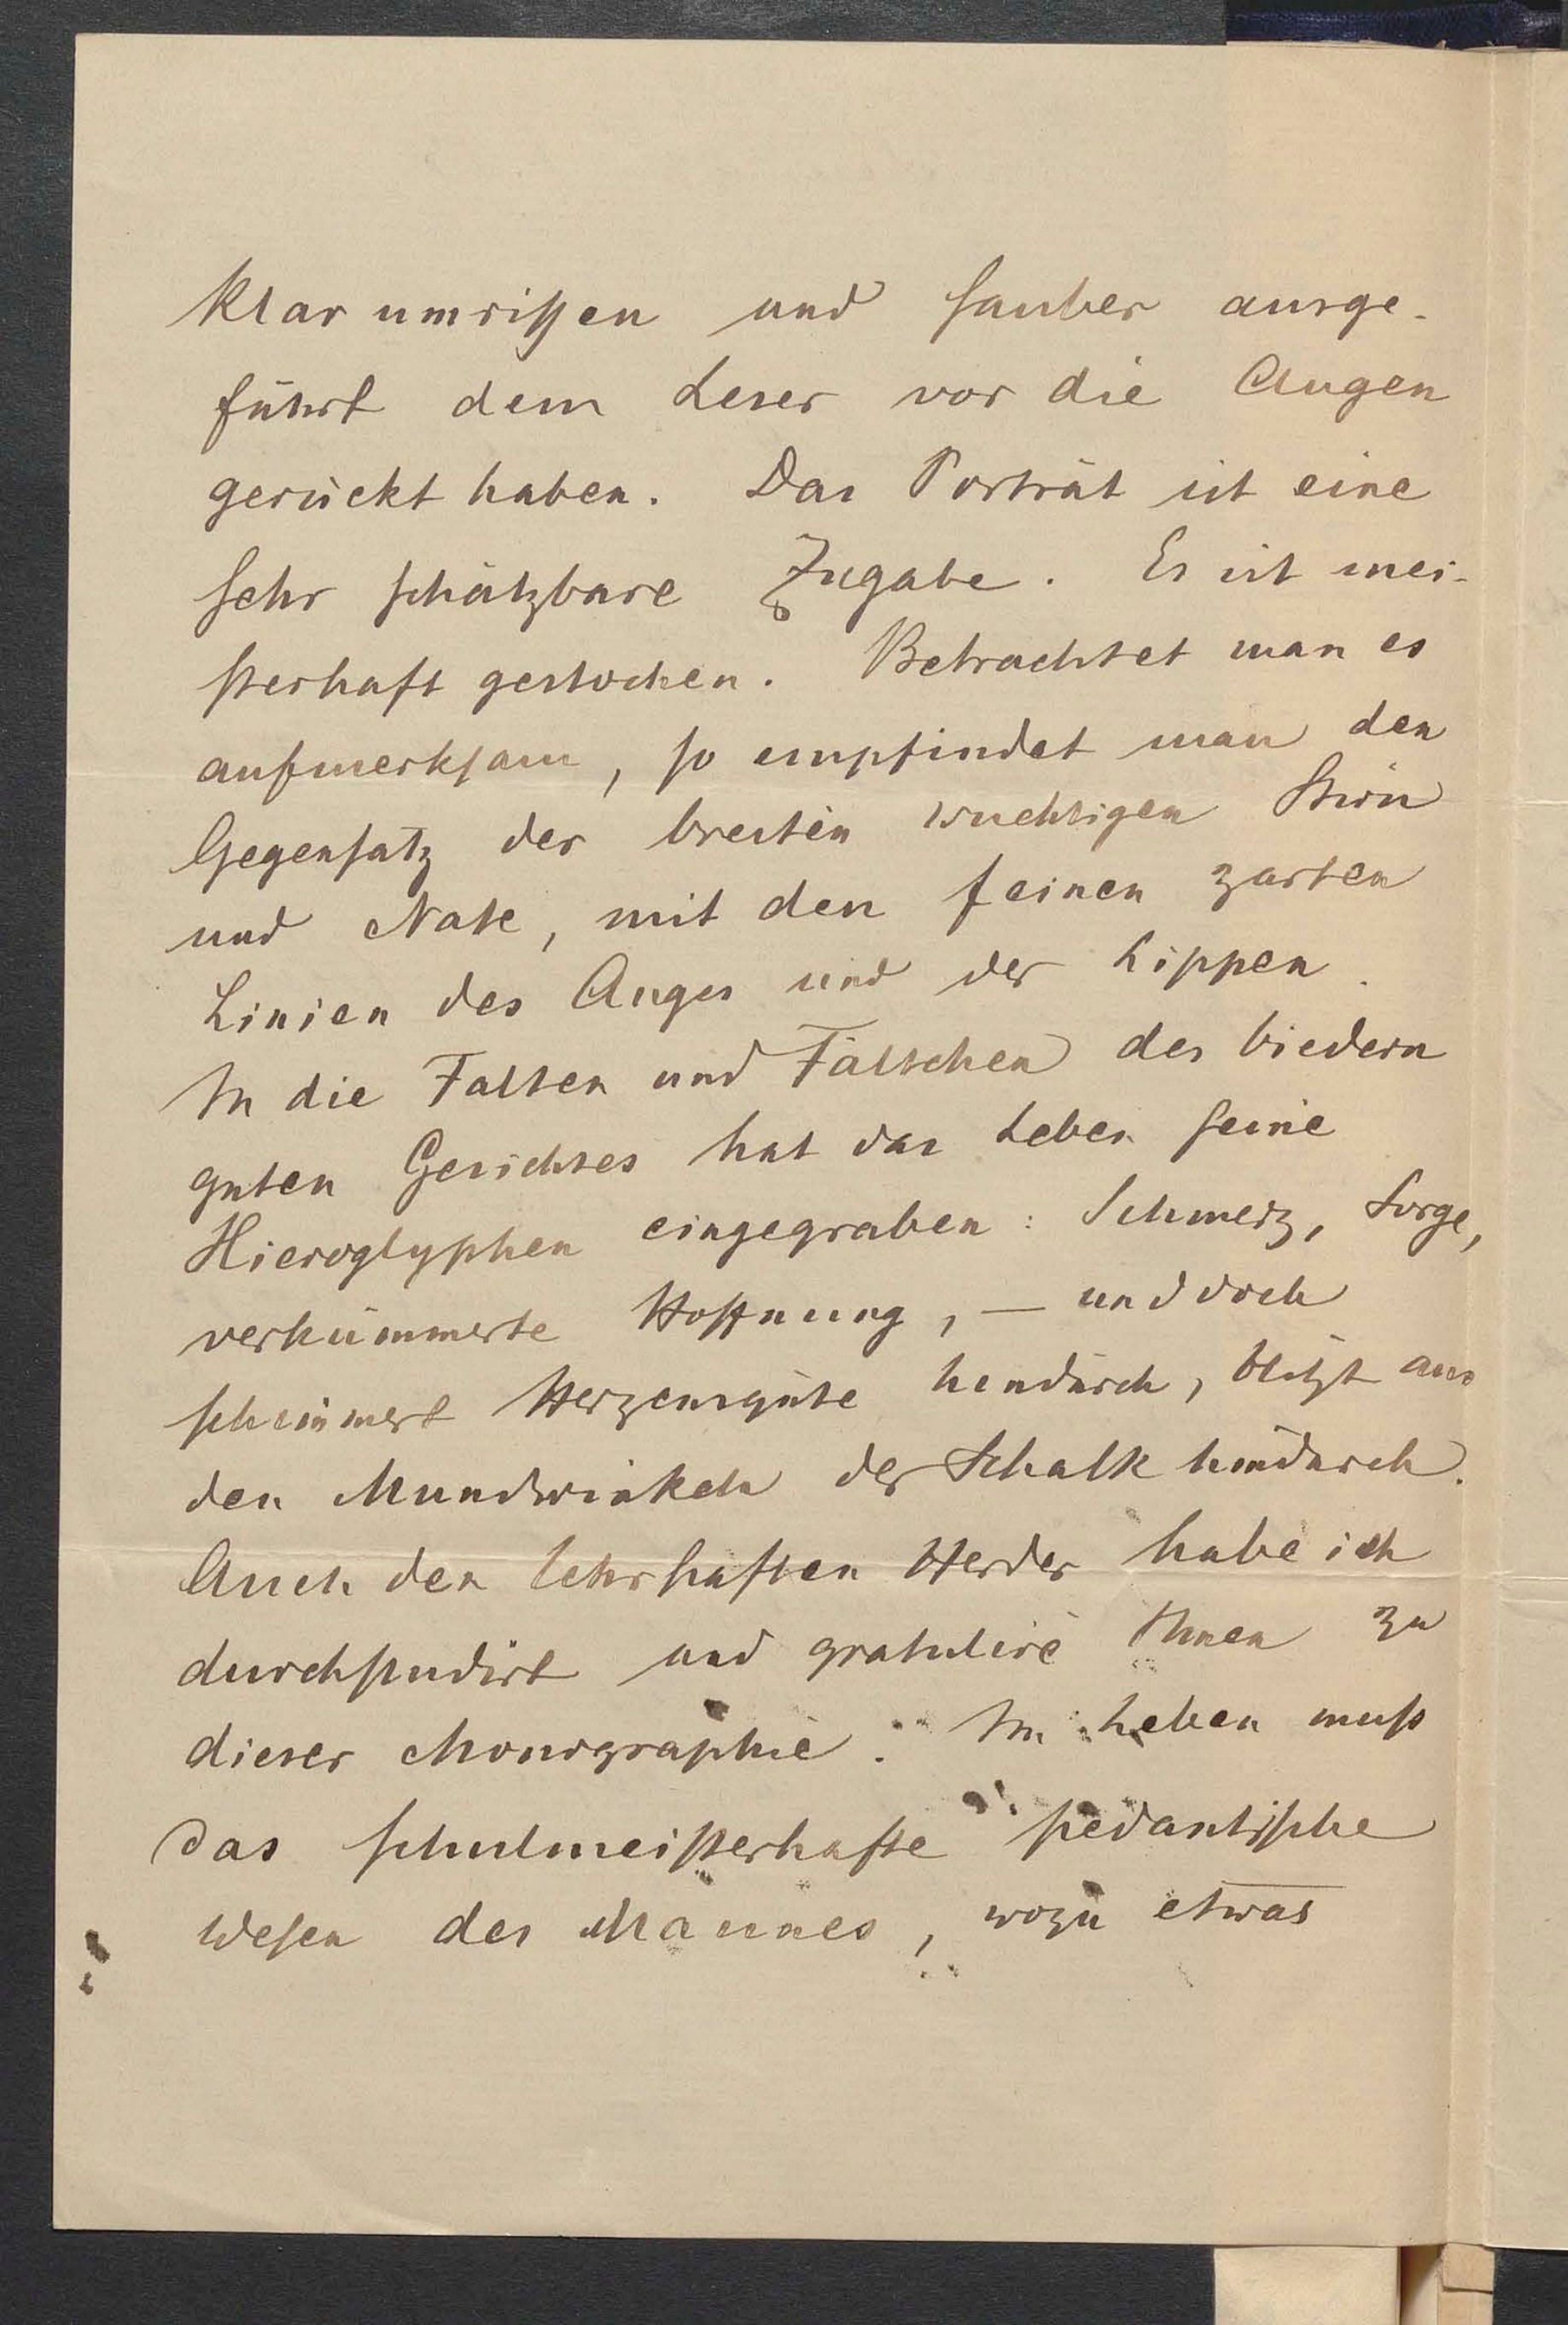 klar umrißen und sauber ausge-
führt dem Leser vor die Augen
gerückt haben. Das Porträt ist eine
sehr schätzbare Zugabe. Es ist mei-
sterhaft gestochen. Betrachtet man es
aufmerksam, so empfindet man den
Gegensatz der breiten wuchtigen Stirn
und Nase, mit den feinen zarten
Linien des Auges und der Lippen.
In die Falten und Fältchen des biedern
guten Gesichtes hat das Leben seine
Hieroglyphen eingegraben: Schmerz, Sorge,
verkümmerte Hoffnung, — und doch
schimmert Herzensgüte hindurch, blitzt aus
den Mundwinkeln der Schalk hindurch.
Auch den lehrhaften Herder habe ich
durchstudirt und gratulire Ihnen zu
dieser Monographie. Im Leben muß
das schulmeisterhafte pedantische
Wesen des Mannes, wozu etwas